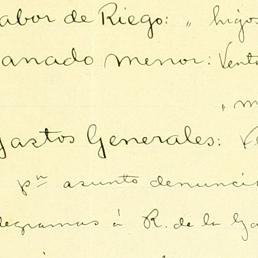 abor de Riego: " higos
anado menor: Vent
" m
Gastos Generales: Ve
pn asunto denunci
legramas á R. de la Ga